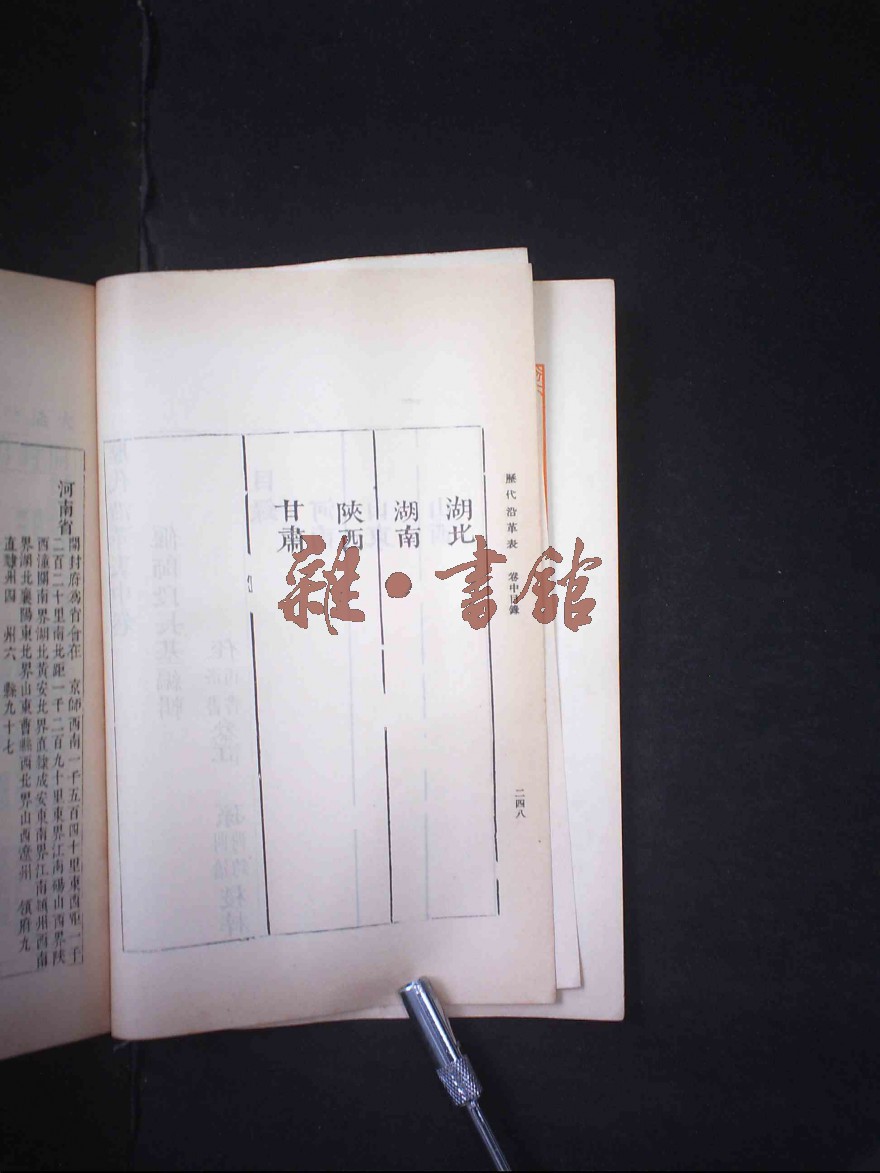 歷代沿革表 卷中目錄
二四八
湖北
湖南
陝西
甘肅
雜·書館
河南省
開封府爲省會在 京師西南一千五百四十里東西距一千
二百二十里南北距一千二百九十里東界江南碭山西界陝
西潼關南界湖北黃安北界直隸成安東南界江南潁州西南
界湖北襄陽東北界山東曹縣西北界山西遼州 領府九
直隸州四 州六 縣九十七